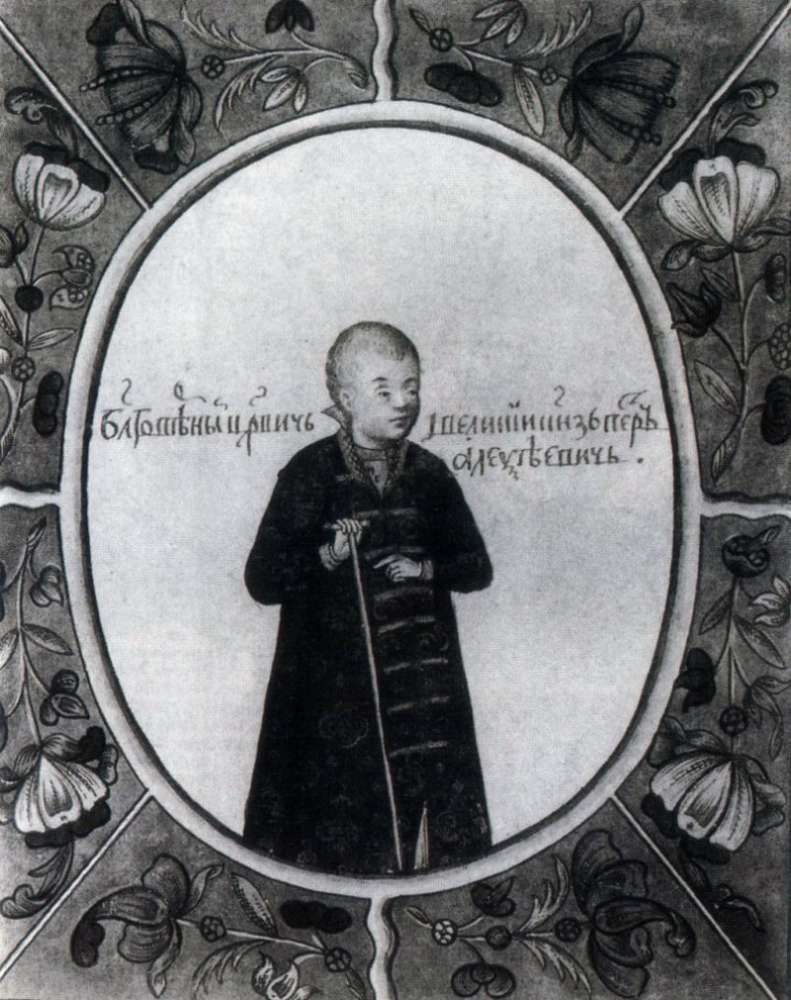 Бл҃говѣ́рны ц҃рвичь і великии кн҃зь петръ
алеѯѣевичь .